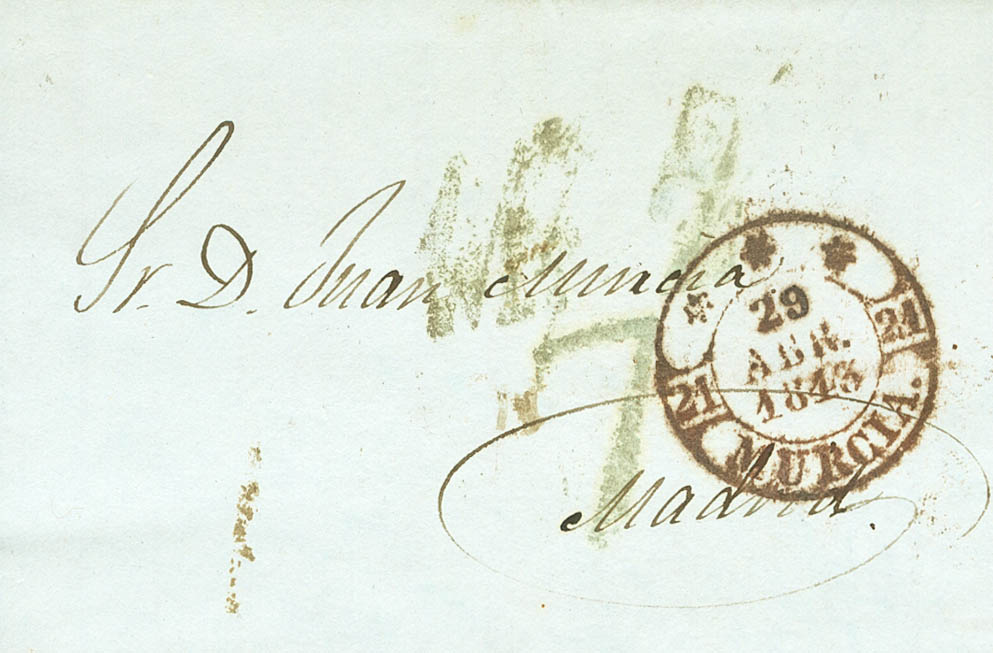 Sr. D. Juan Murcia
Madrid.
29
ABR.
1843
21 MURCIA. 21
7